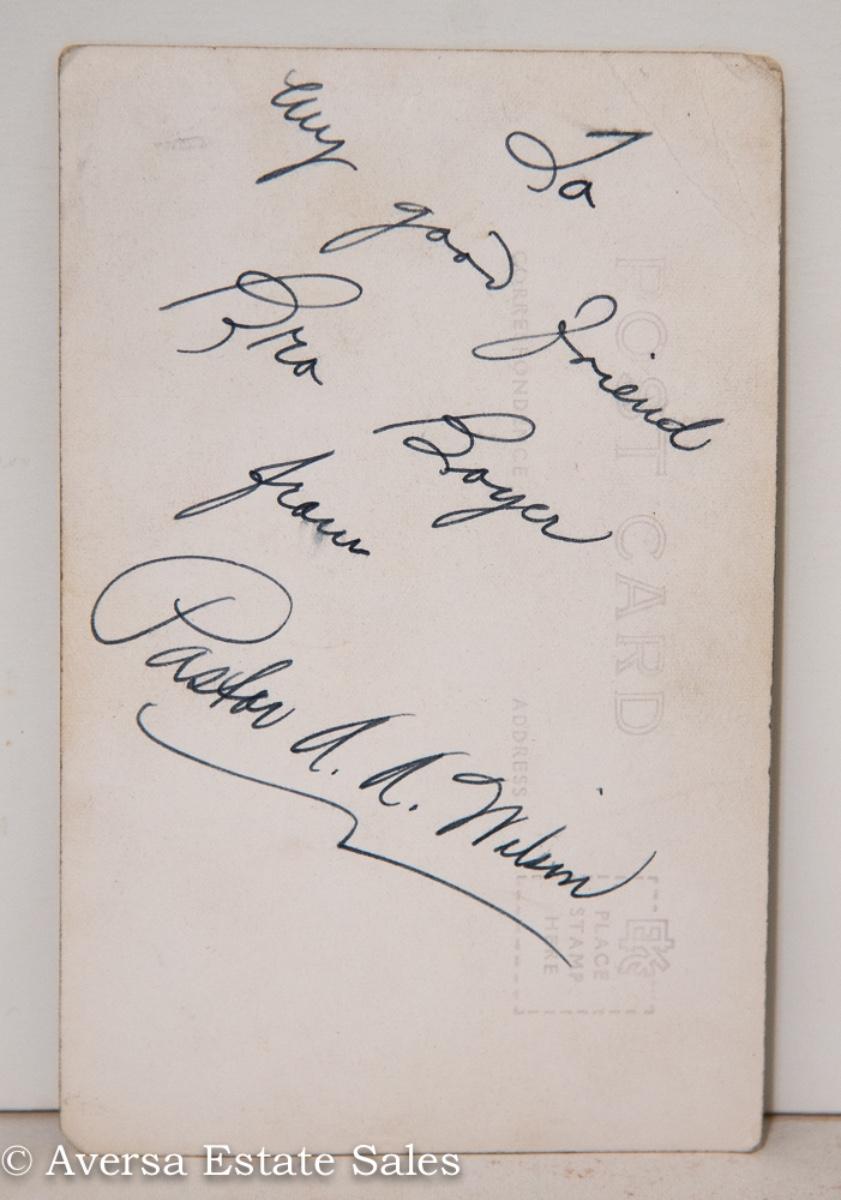 To
my good friend
Bro Boyer
from
Pastor A. A. Wilson
POST CARD
CORRESPONDACE
ADDRESS
PLACE
STAMP
HERE
© Aversa Estate Sales